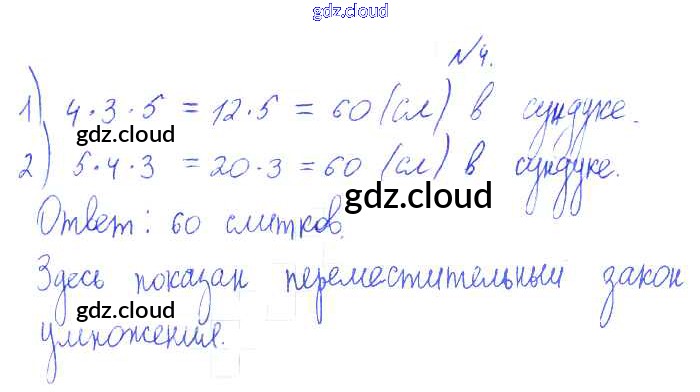 gdz.cloud
№4.
1) 4·3·5 = 12·5 = 60 (сл) в сундуке.
gdz.cloud
2) 5·4·3 = 20·3 = 60 (сл) в сундуке.
gdz.cloud
Ответ: 60 слитков.
Здесь показан переместительный закон
gdz.cloud
умножения.